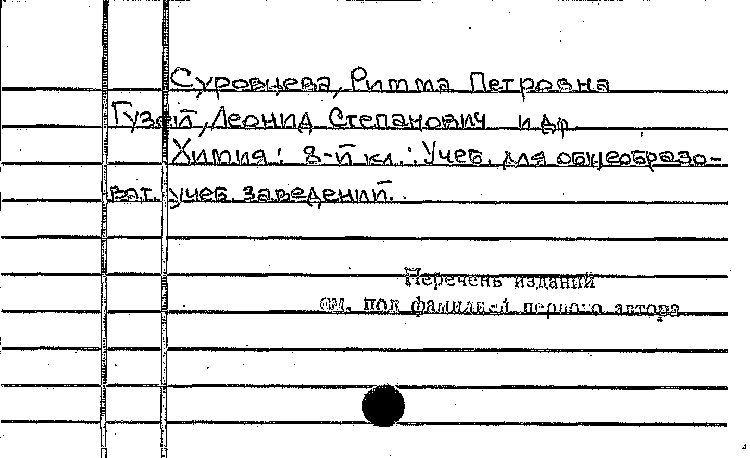 Суровцева, Римма Петровна
Гузей, Леонид Степанович и др
Химия: 8-й кл.: Учеб. для общеобразо-
ват. учеб. заведений.
Перечень изданий
см. под фамилией первого автора